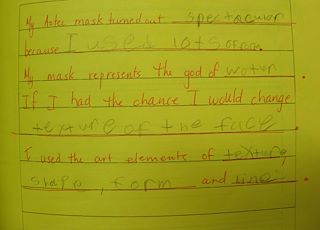 My Aztec mask turned out spectacular
because I used lots of
My mask represents the god of water.
If I had the chance I would change
texture of the face.
I used the art elements of texture,
shape, form and line.